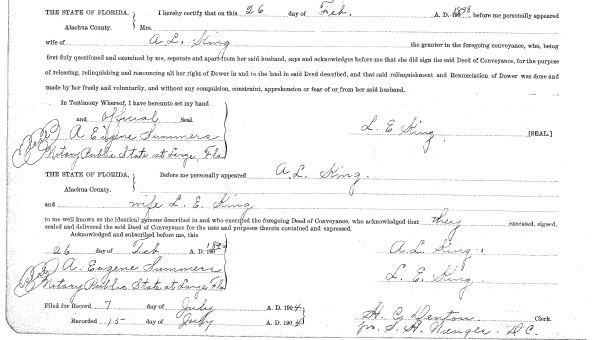 THE STATE OF FLORIDA, I hereby certify that on this 26 day of Feb. A. D. 190 1898 before me personally appeared
Alachua County. Mrs.
wife of A. L. King the grantor in the foregoing conveyance, who, being
first duly questioned and examined by me, separate and apart from her said husband, says and acknowledges before me that she did sign the said Deed of Conveyance, for the purpose
of releasing, relinquishing and renouncing all her right of Dower in and to the land in said Deed described, and that said relinquishment and Renunciation of Dower was done and
made by her freely and voluntarily, and without any compulsion, constraint, apprehension or fear of or from her said husband.
In Testimony Whereof, I have hereunto set my hand
and Official Seal.
A Eugene Summers L. E King [SEAL.]
Notary Public State at Large, Fla
THE STATE OF FLORIDA, Before me personally appeared A. L. King.
Alachua County.
and wife L. E. King
to me well known as the identical persons described in and who executed the foregoing Deed of Conveyance, who acknowledged that they executed, signed,
sealed and delivered the said Deed of Conveyance for the uses and purposes therein contained and expressed.
Acknowledged and subscribed before me, this
26 day of Feb A. D. 190 A. L. King.
A. Eugene Summers L. E. King
Notary Public State at Large Fla
Filed for Record 7 day of July A. D. 1904 H. G. Denton Clerk.
Recorded 15 day of July A. D. 1904 D.C.